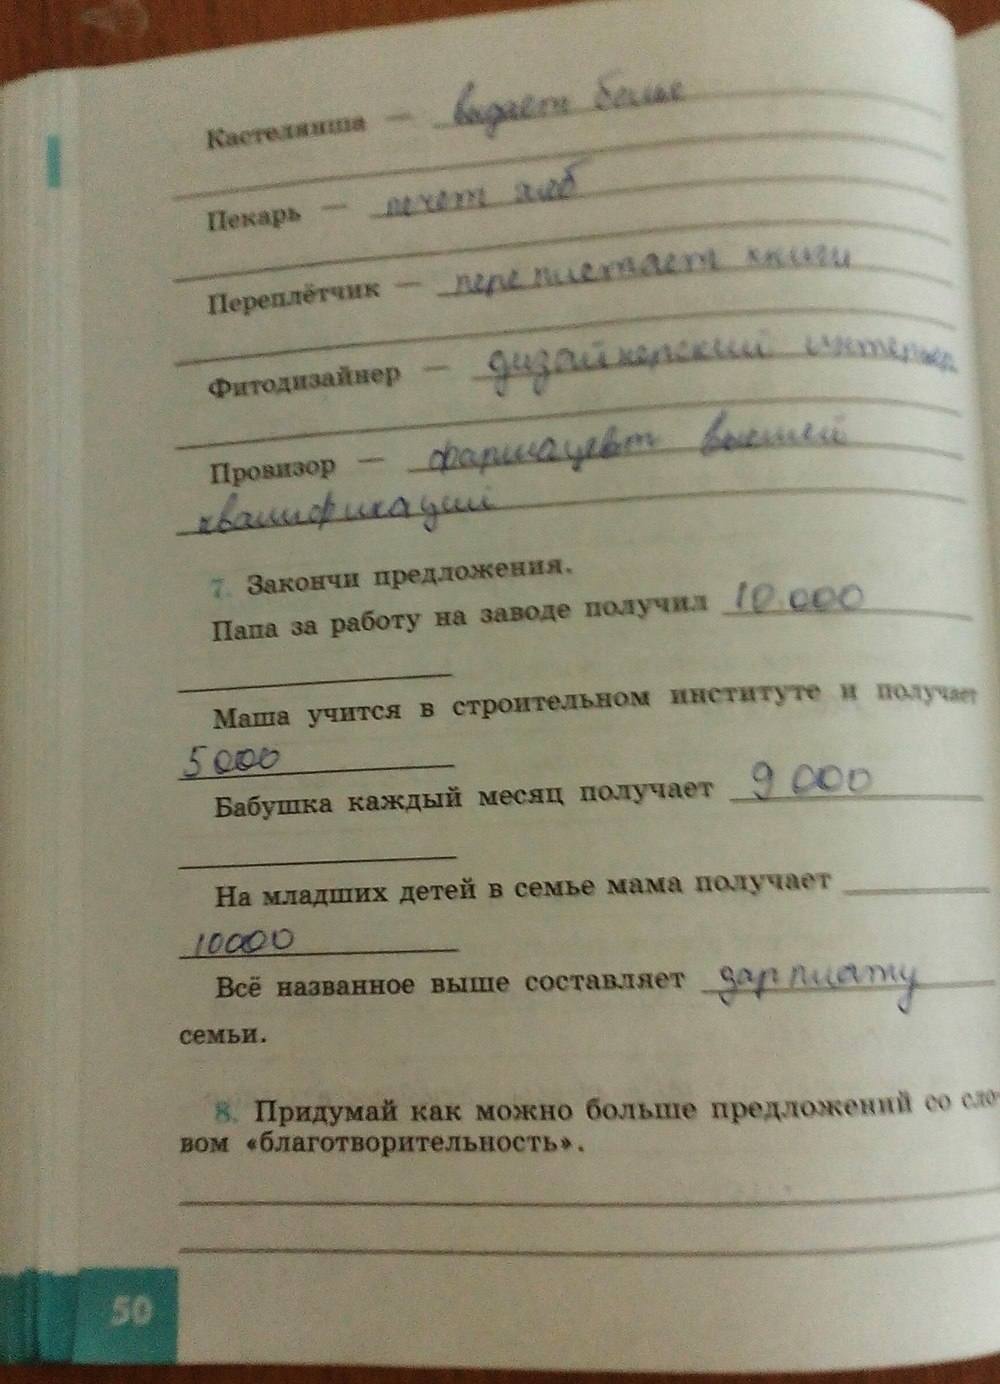 Кастелянша — выдает белье
Пекарь — печет хлеб
Переплётчик — переплетает книги
Фитодизайнер — дизайнерский интерьер
Провизор — фармацевт высшей
квалификации
7. Закончи предложения.
Папа за работу на заводе получил 10.000
Маша учится в строительном институте и получает
5000
Бабушка каждый месяц получает 9000
На младших детей в семье мама получает
10000
Всё названное выше составляет зарплату
семьи.
8. Придумай как можно больше предложений со сло-
вом «благотворительность».
50